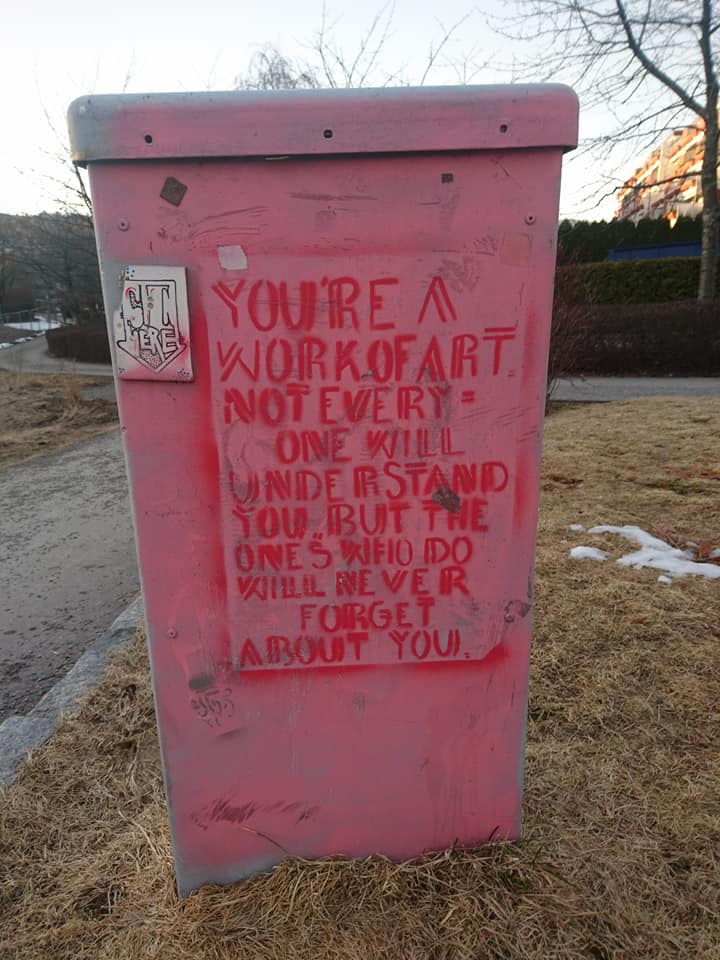 YOU'RE A
WORK OF ART.
NOT EVERY-
ONE WILL
UNDERSTAND
YOU, BUT THE
ONE'S WHO DO
WILL NEVER
FORGET
ABOUT YOU.
HERE